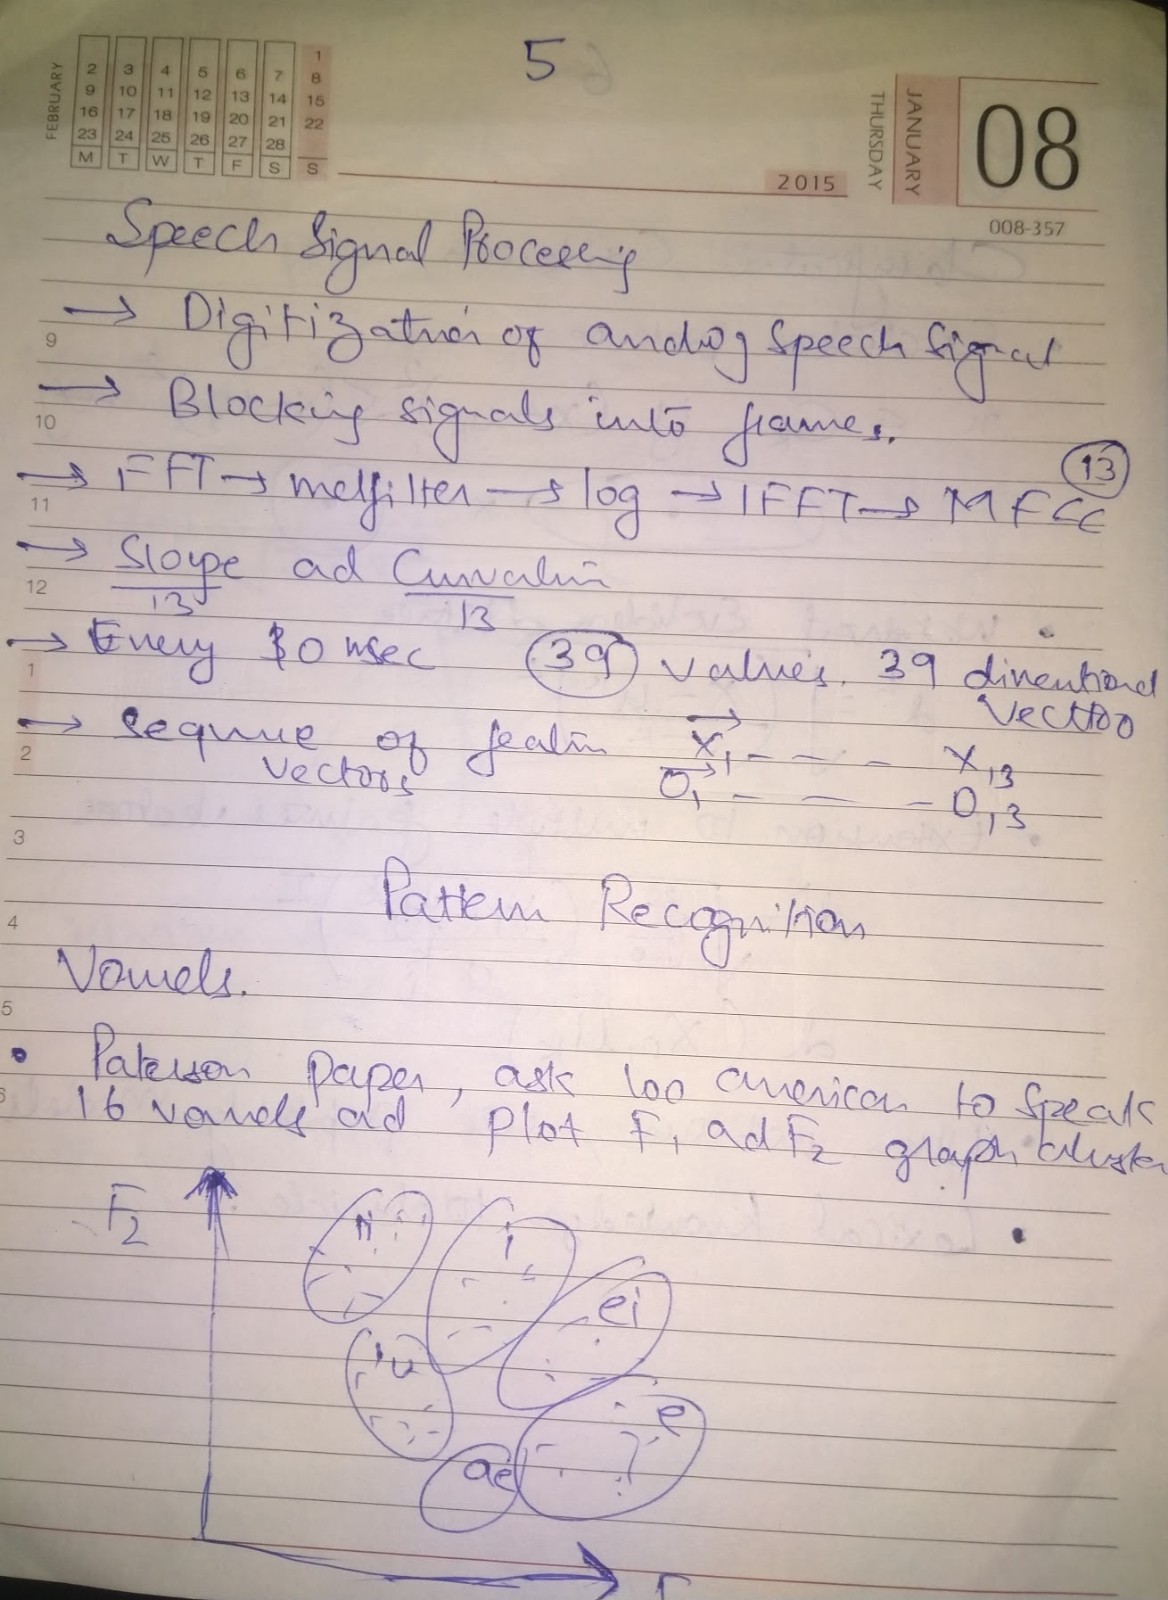 5
FEBRUARY
2 3 4 5 6 7 1
9 10 11 12 13 14 8
16 17 18 19 20 21 15
23 24 25 26 27 28 22
M T W T F S S
2015
THURSDAY
JANUARY
08
008-357
Speech Signal Processing
→ Digitization of analog speech signal
9
→ Blocking signals into frames.
10
13
→ FFT → melfilter → log → IFFT → MFCC
11
→ Slope ad Curvature
12
13 13
→ Every 10 msec 39 values. 39 dimentional
1
vector
→ sequence of feature X₁ - - - X₁₃
2
vectors O₁ - - - O₁₃
3
Pattern Recognition
4
Vowels.
5
• Paterson paper, ask 100 american to speak
6
16 vowels ad plot F₁ ad F₂ graph, cluster
F₂
ii i
ei
u
e
ae